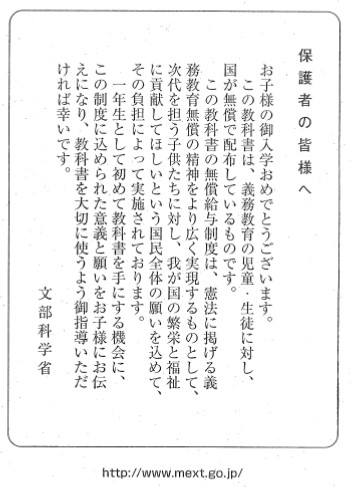 保護者の皆様へ
お子様の御入学おめでとうございます。
この教科書は、義務教育の児童・生徒に対し、
国が無償で配布しているものです。
この教科書の無償給与制度は、憲法に掲げる義
務教育無償の精神をより広く実現するものとして、
次代を担う子供たちに対し、我が国の繁栄と福祉
に貢献してほしいという国民全体の願いを込めて、
その負担によって実施されております。
一年生として初めて教科書を手にする機会に、
この制度に込められた意義と願いをお子様にお伝
えになり、教科書を大切に使うよう御指導いただ
ければ幸いです。
文部科学省
http://www.mext.go.jp/